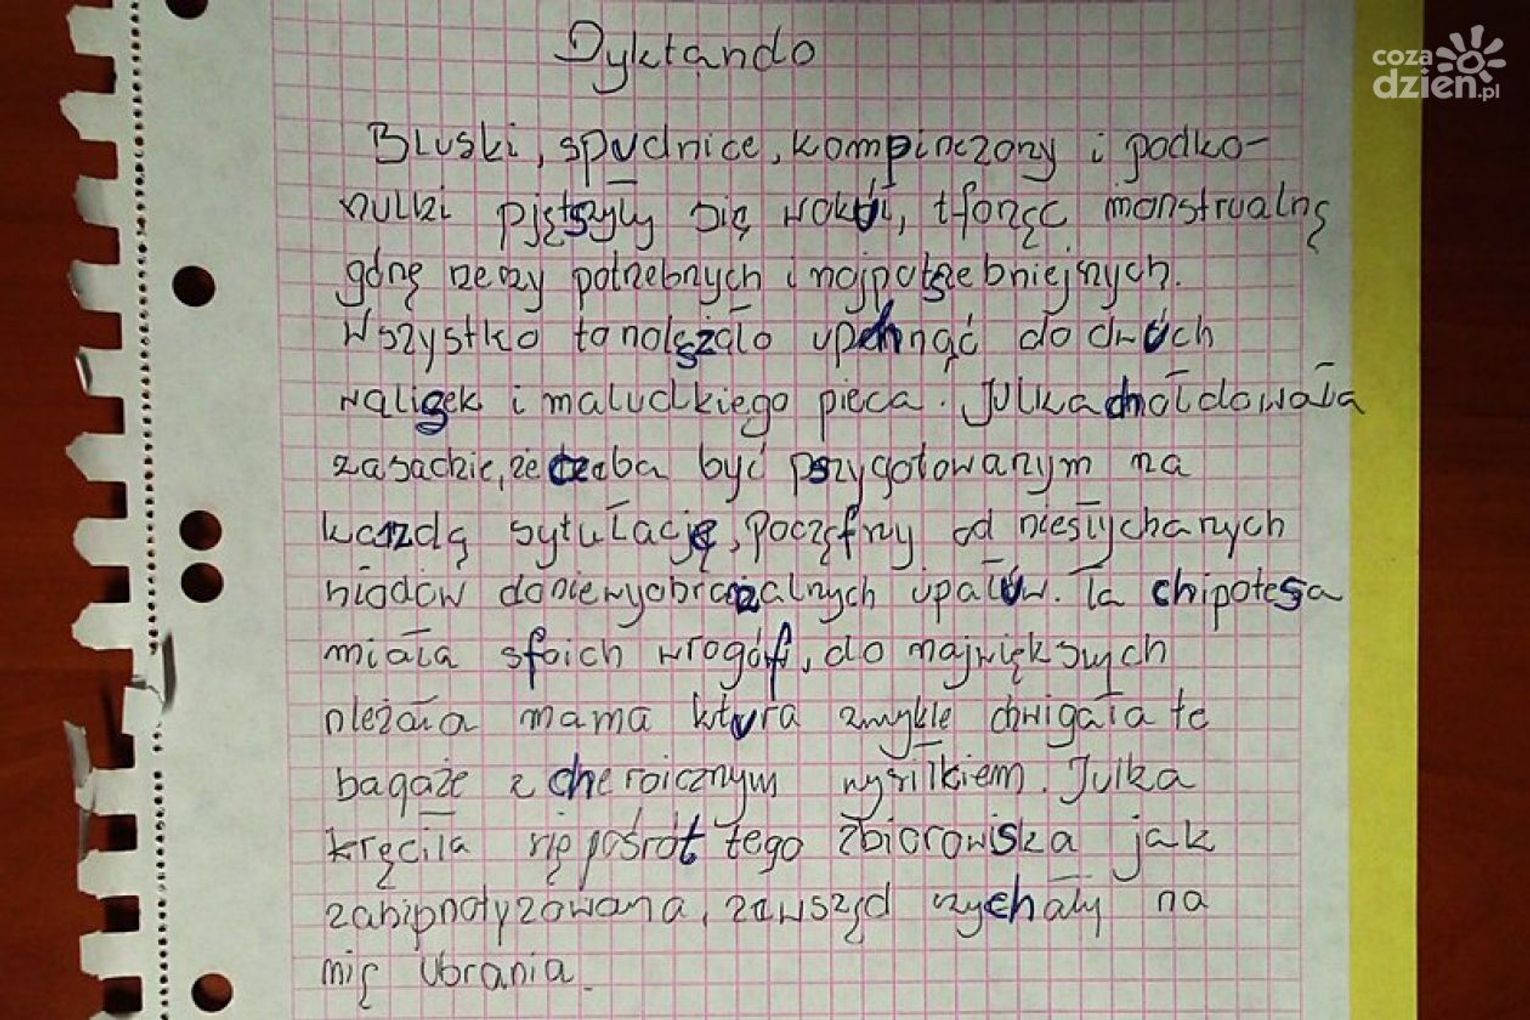 coza
dzien.pl
Dyktando
Bluski, spudnice, kompinezony i podko-
nulki pjętszyły się wokuł, tfożąc monstrualną
górę rzeczy potrzebnych i najpotszebniejszych.
Wszystko to należało upchnąć do dwóch
walisek i maludkiego pleca. Julka chołdowała
zasadzie, że tzeba być pszygotowanym na
każdą sytułację, począfszy od niesłychanych
hłodów do niewyobrażalnych upałuw. Ta chipotesa
miała sfoich wrogóf, do największych
należała mama ktura zwykle dwigała te
bagaże z cheroicznym wysiłkiem. Julka
kręciła się pośrót tego zbiorowiska jak
zahipnotyzowana, zewsząd czychały na
nią ubrania.